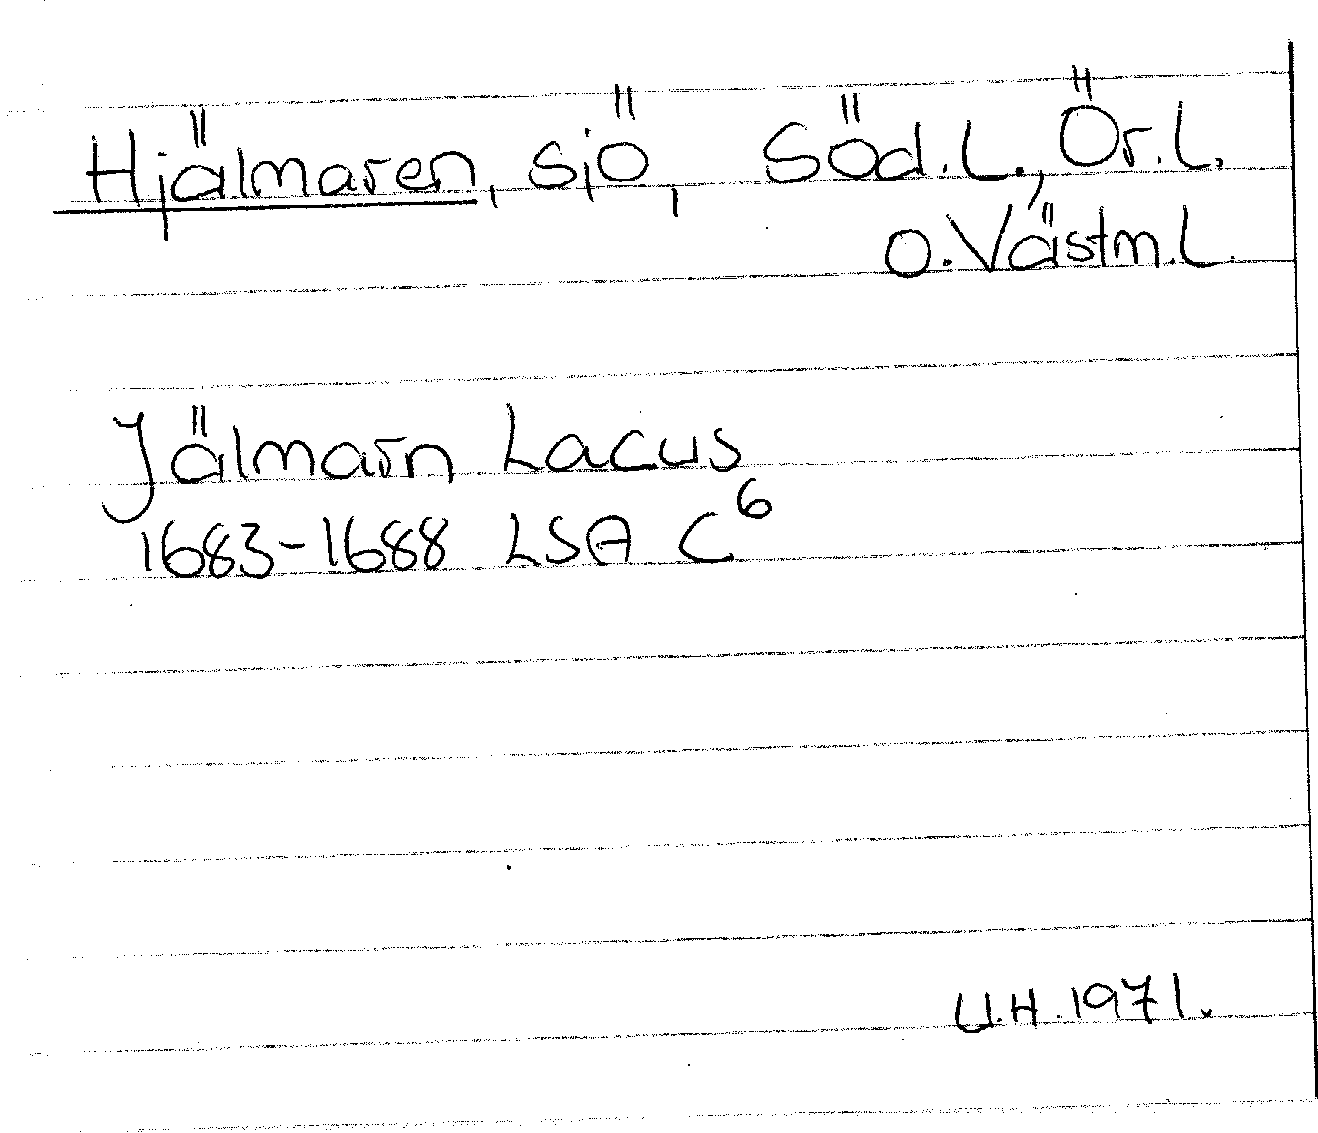 Hjälmaren, sjö, Söd.L., Ör.L.
o.Västm.L.
Jälmarn Lacus
1683-1688 LSA C⁶
U.H.1971.